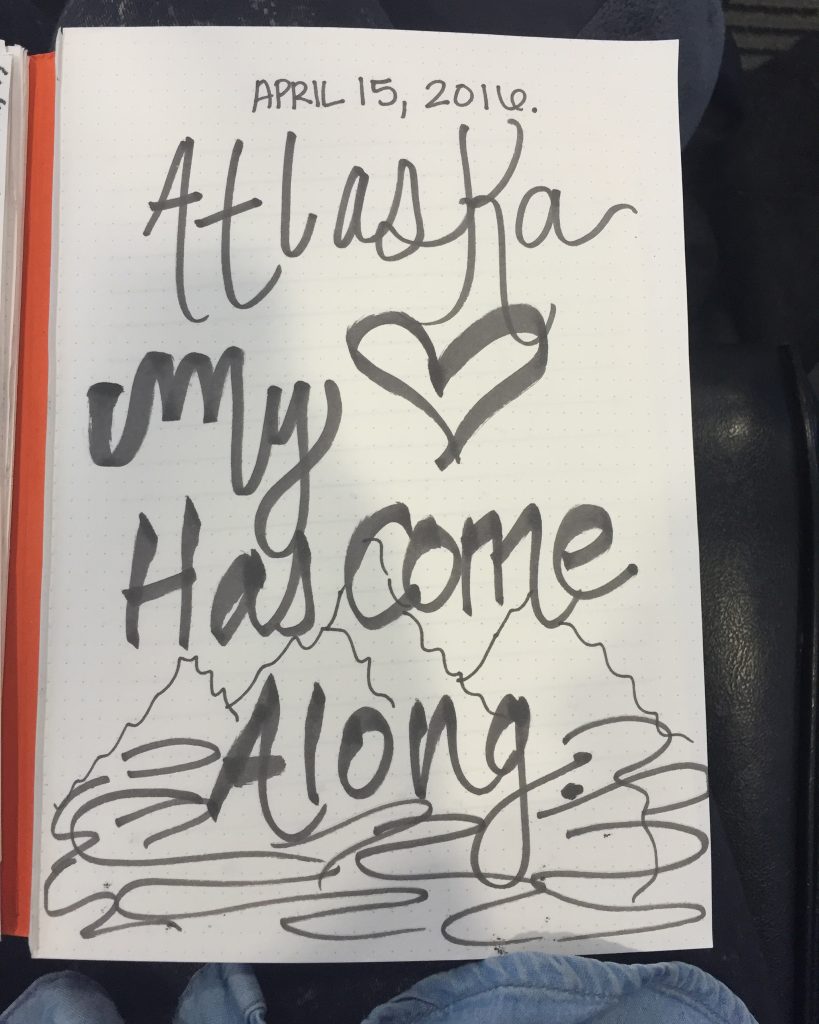 APRIL 15, 2016.
Atlaska
My
Has Come
Along.